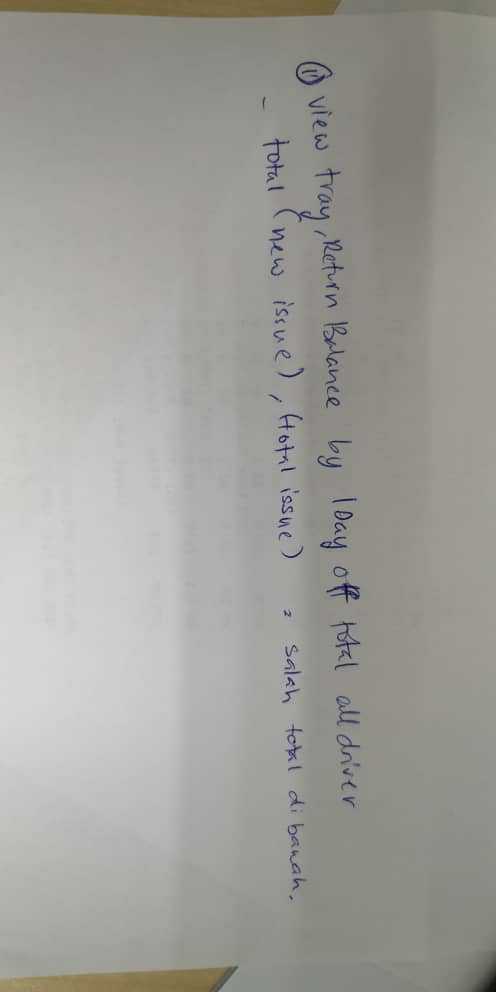 ① View tray, Return Balance by 1 Day off total all driver
- total (new issue), (total issue) = salah total dibawah.